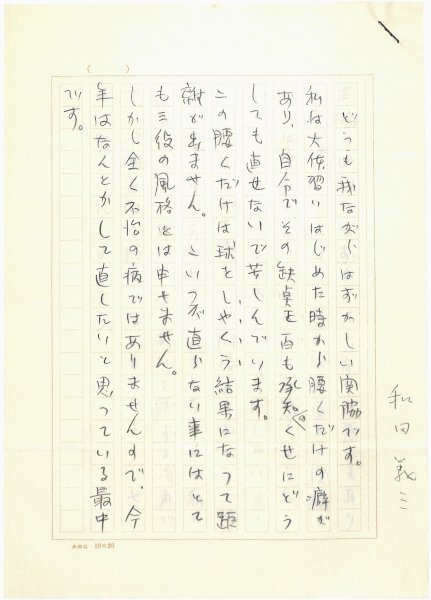 どうも我ながらはずかしい関脇です。
私は大体習いはじめた時から腰くだけの癖が
あり、自分でその欠点を百も承知のくせにどう
しても直せないで苦しんでいます。
この腰くだけは球をしゃくう結果になって距
離が出ません。こいつが直らない事にはとて
も三役の風格とは申せません。
しかし全く不治の病ではありませんので、今
年はなんとかして直したいと思っている最中
です。
和田義三
ABC 10×20